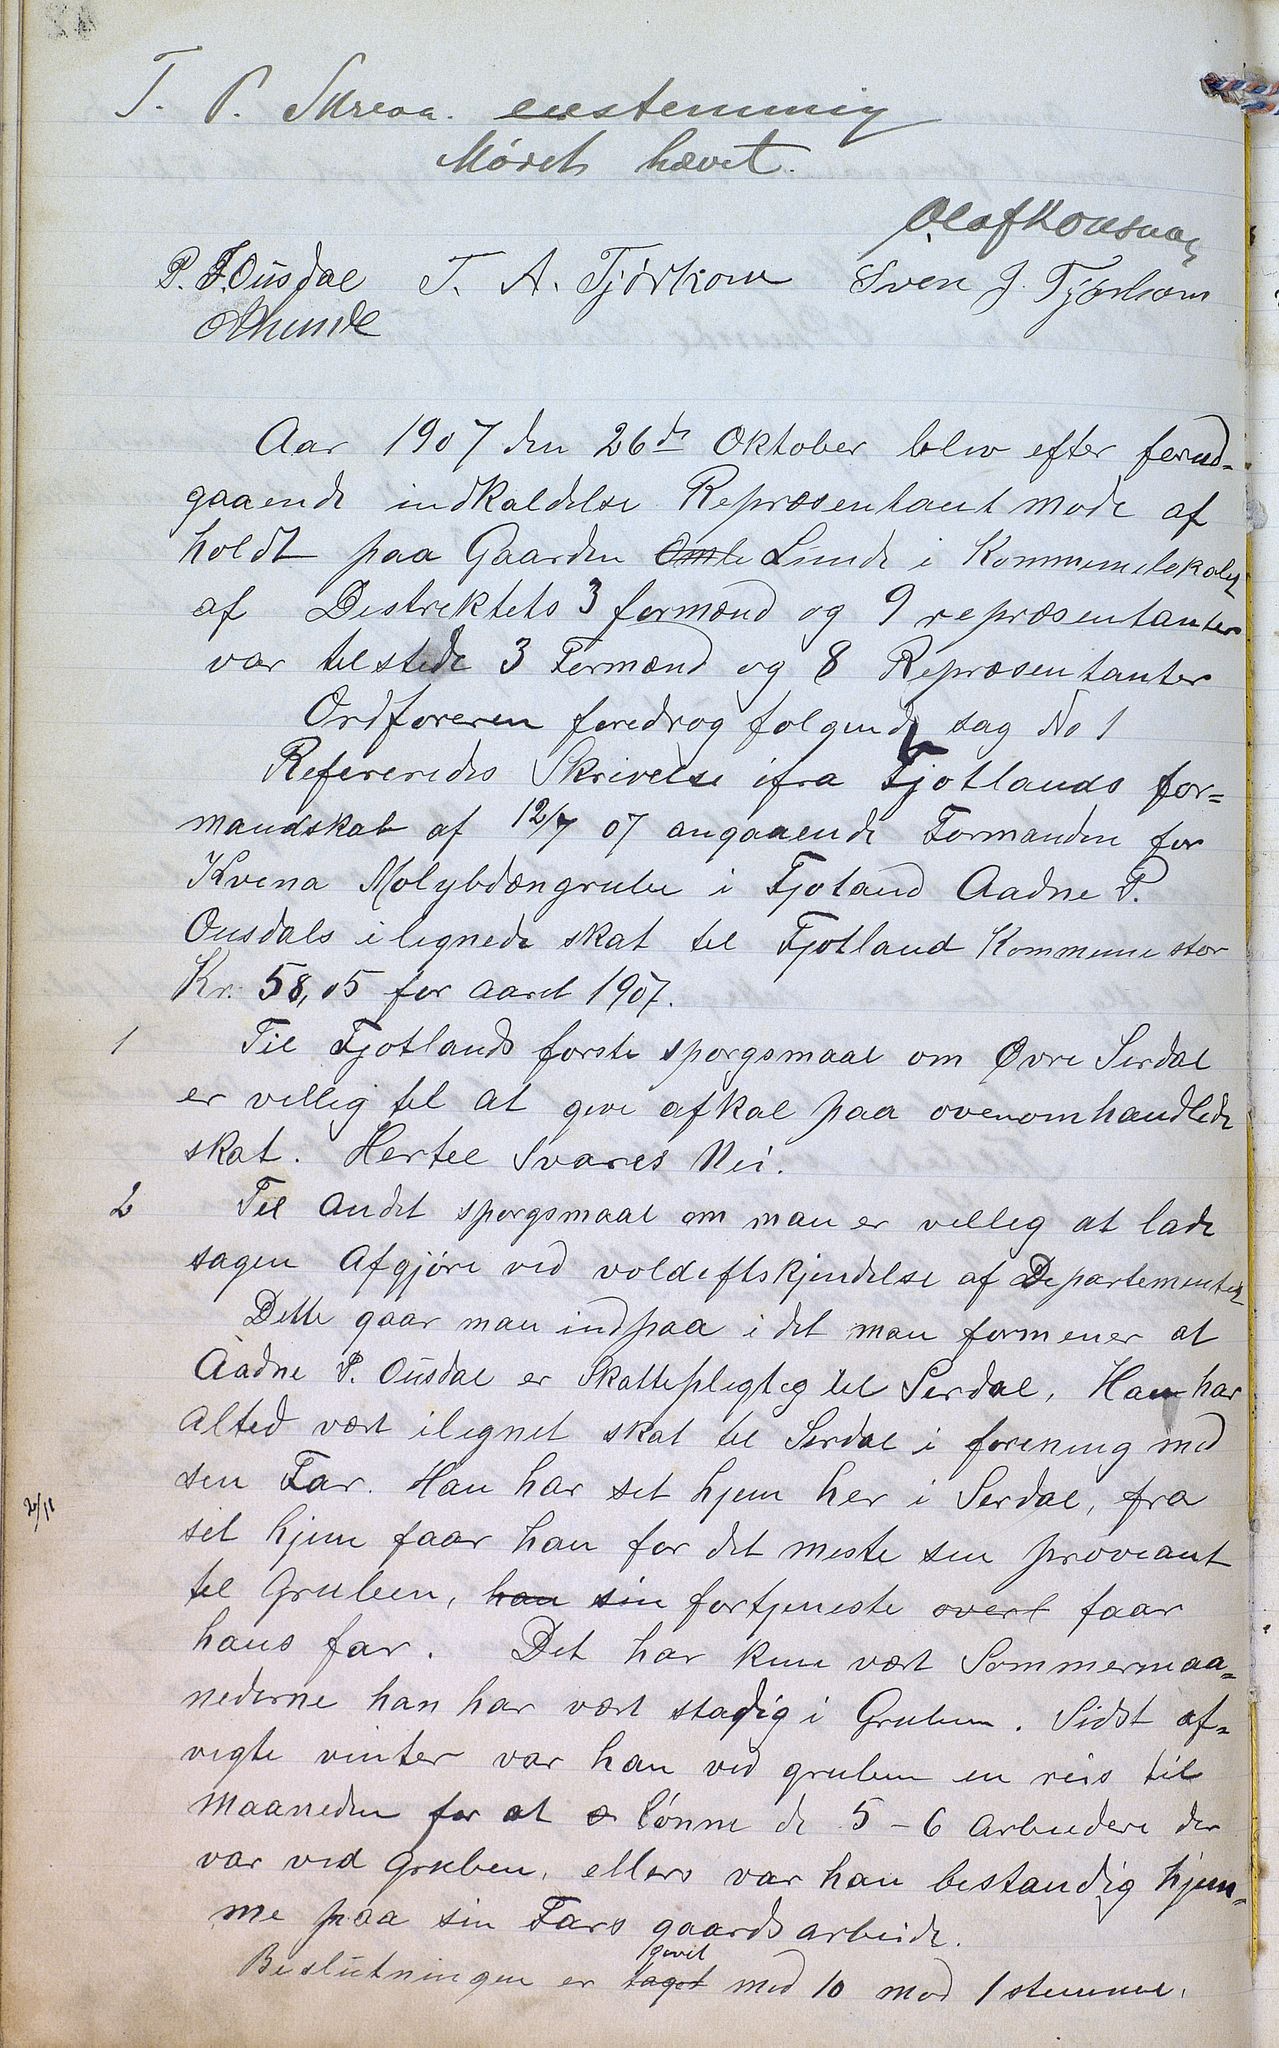 T. P. Skreaa. enstemmig
Mødet hævet.
Olaf Kousnas
P. T. Ousdal T. A. Tjørhom Sven J. Tjørhom
Aar 1907 den 26de Oktober blev efter forud-
gaaende indkaldelse Repræsentant møde af
holdt paa Gaarden Omli Lunde i Kommunelokalet
af Destriktets 3 formænd og 9 repræsentanter
var tilstede 3 Formænd og 8 Repræsentanter
Ordføreren foredrog følgende sag No 1
Refereredes Skrivelse ifra Fjotlands for=
mandskab af 12/7 07 angaaende Formanden for
Kvina Molybdængrube i Fjotland Aadne P.
Ousdals ilignede skat til Fjotland Kommune stor
Kr. 58,05 for aaret 1907.
1 Til Fjotlands første spørgsmaal om Øvre Sirdal
er villig til at give afkal paa ovenomhandlede
skat. Hertil Svares Nei.
2 Til andet spørgsmaal om man er villig at lade
sagen Afgjøre ved voldgiftskjendelse af Departementet
Dette gaar man ind paa i det man formener at
Aadne P. Ousdal er Skattepligtig til Serdal, Han har
altid vært ilignet skat til Serdal i forening med
sin Far. Han har sit hjem her i Serdal, fra
2/11
sit hjem faar han for det meste sin proviant
til Gruben, han sin fortjeneste overl faar
hans far. Det har kun vært Sommermaa=
nederne han har vært stadig i Gruben. Sidst af=
vigte vinter var han ved gruben en reis til
Maaneden for at lønne de 5-6 arbeidere der
var ved gruben, ellers var han bestandig hjem=
me paa sin Fars gaards arbeide.
givet
Beslutningen er taget med 10 mod 1 stemme.